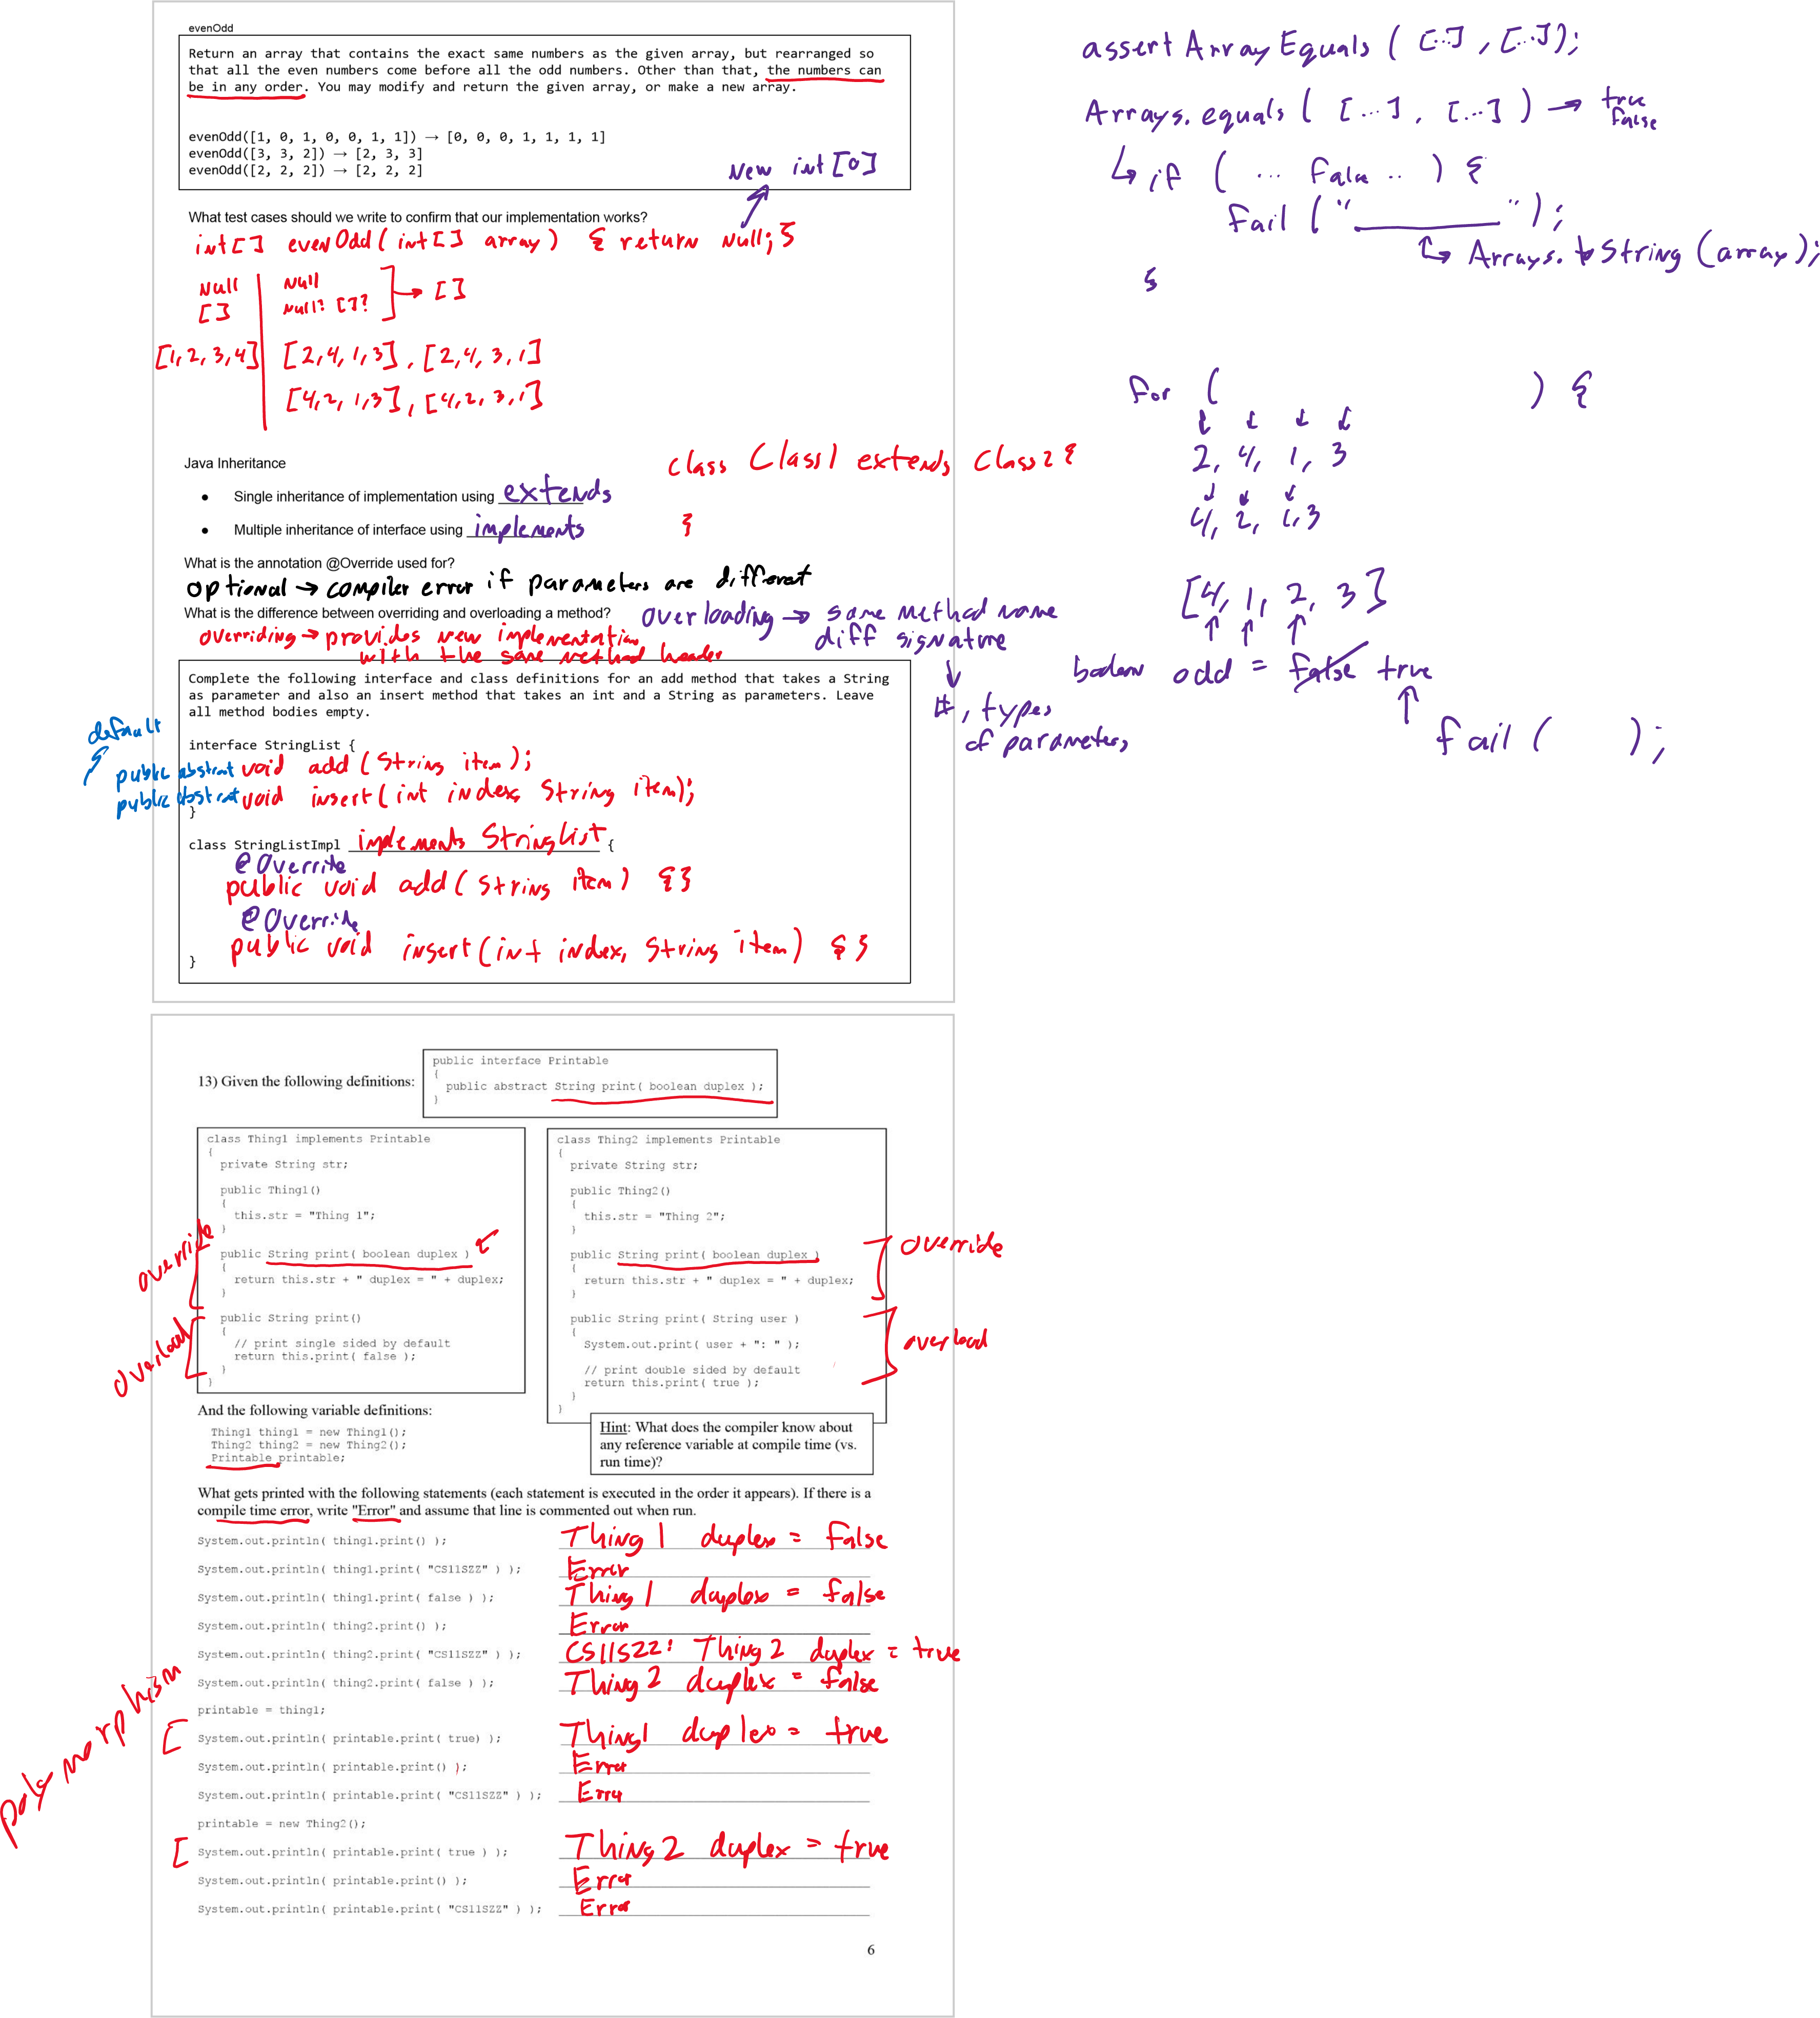 evenOdd
Return an array that contains the exact same numbers as the given array, but rearranged so
that all the even numbers come before all the odd numbers. Other than that, the numbers can
be in any order. You may modify and return the given array, or make a new array.
evenOdd([1, 0, 1, 0, 0, 1, 1]) → [0, 0, 0, 1, 1, 1, 1]
evenOdd([3, 3, 2]) → [2, 3, 3]
evenOdd([2, 2, 2]) → [2, 2, 2]
New int [0]
What test cases should we write to confirm that our implementation works?
int[] evenOdd(int[] array) { return Null; }
Null Null
[] Null? []? → []
[1, 2, 3, 4] [2, 4, 1, 3], [2, 4, 3, 1]
[4, 2, 1, 3], [4, 2, 3, 1]
Java Inheritance
class Class1 extends Class2 {
• Single inheritance of implementation using extends
• Multiple inheritance of interface using implements
}
What is the annotation @Override used for?
optional → compiler error if parameters are different
What is the difference between overriding and overloading a method?
overriding → provides new implementation
with the same method header
overloading → same method name
diff signature
#, types
of parameters
Complete the following interface and class definitions for an add method that takes a String
as parameter and also an insert method that takes an int and a String as parameters. Leave
all method bodies empty.
default
interface StringList {
public abstract void add (String item);
public abstract void insert (int index, String item);
}
class StringListImpl implements StringList {
@Override
public void add (String item) {}
@Override
public void insert (int index, String item) {}
}
assert Array Equals ( [...] , [...]);
Arrays. equals ( [...] , [...] ) → true
false
↳ if ( ... false .. ) {
fail (" ");
↳ Arrays. toString (array);
}
for ( ) {
2, 4, 1, 3
4, 2, 1, 3
[4, 1, 2, 3]
boolean odd = false true
fail ( );
13) Given the following definitions:
public interface Printable
{
public abstract String print( boolean duplex );
}
class Thing1 implements Printable
{
private String str;
public Thing1()
{
this.str = "Thing 1";
}
override
public String print( boolean duplex )
{
return this.str + " duplex = " + duplex;
}
overload
public String print()
{
// print single sided by default
return this.print( false );
}
}
class Thing2 implements Printable
{
private String str;
public Thing2()
{
this.str = "Thing 2";
}
public String print( boolean duplex )
override
{
return this.str + " duplex = " + duplex;
}
public String print( String user )
overload
{
System.out.print( user + ": " );
// print double sided by default
return this.print( true );
}
}
And the following variable definitions:
Thing1 thing1 = new Thing1();
Thing2 thing2 = new Thing2();
Printable printable;
Hint: What does the compiler know about
any reference variable at compile time (vs.
run time)?
What gets printed with the following statements (each statement is executed in the order it appears). If there is a
compile time error, write "Error" and assume that line is commented out when run.
System.out.println( thing1.print() ); Thing 1 duplex = false
System.out.println( thing1.print( "CS11SZZ" ) ); Error
System.out.println( thing1.print( false ) ); Thing 1 duplex = false
System.out.println( thing2.print() ); Error
System.out.println( thing2.print( "CS11SZZ" ) ); CS11SZZ: Thing 2 duplex = true
System.out.println( thing2.print( false ) ); Thing 2 duplex = false
polymorphism
printable = thing1;
System.out.println( printable.print( true) ); Thing1 duplex = true
System.out.println( printable.print() ); Error
System.out.println( printable.print( "CS11SZZ" ) ); Error
printable = new Thing2();
System.out.println( printable.print( true ) ); Thing 2 duplex = true
System.out.println( printable.print() ); Error
System.out.println( printable.print( "CS11SZZ" ) ); Error
6